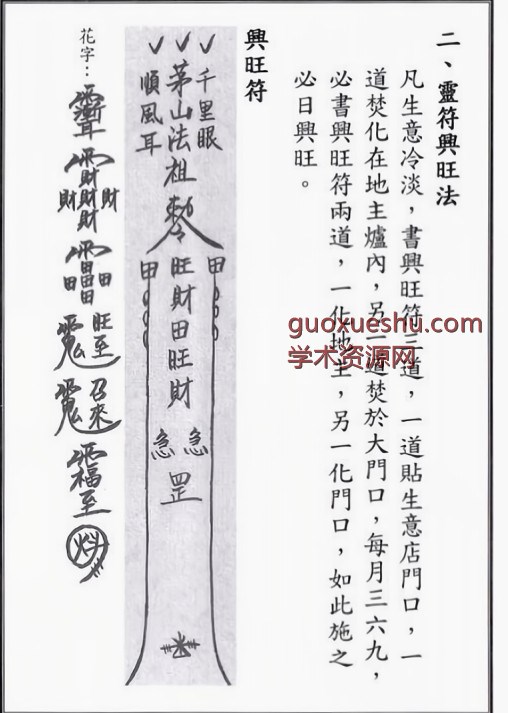 二、靈符興旺法
凡生意冷淡，書興旺符三道，一道貼生意店門口，一
道焚化在地主爐內，另一道焚於大門口，每月三六九，
必書興旺符兩道，一化地主，另一化門口，如此施之
必日興旺。
guoxueshu.com
学术资源网
興旺符
千里眼
茅山法祖勅令
順風耳
旺財田旺財
急急
罡
花字：